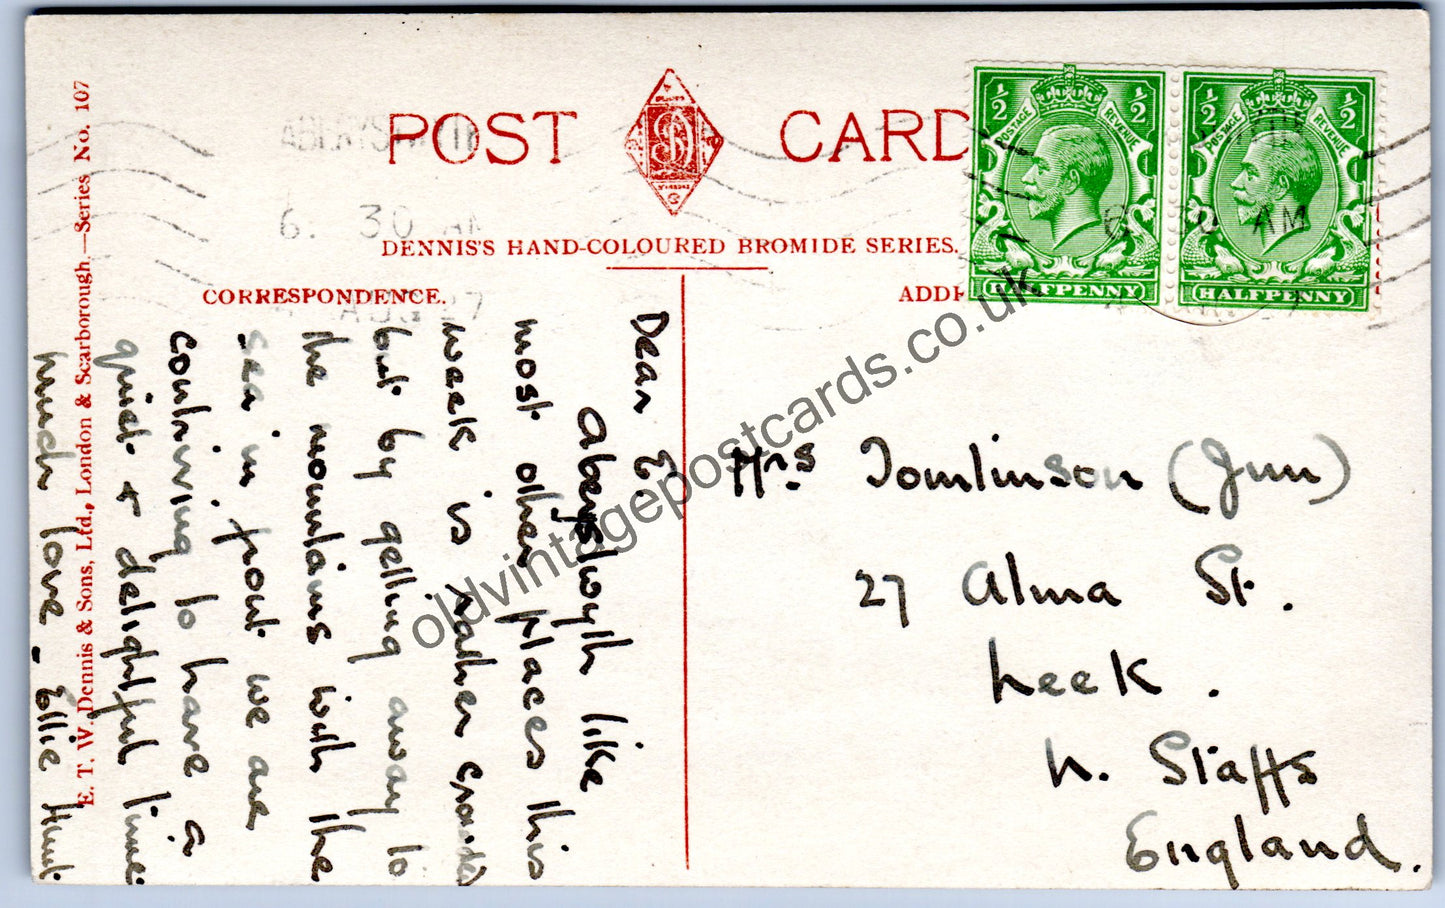 POST CARD
DENNIS'S HAND-COLOURED BROMIDE SERIES.
CORRESPONDENCE.
ADDR
ABERYSTWYTH
6. 30 AM
AUG 27
30 AM
½ ½
POSTAGE REVENUE
HALFPENNY
½ ½
POSTAGE REVENUE
HALFPENNY
E. T. W. Dennis & Sons, Ltd., London & Scarborough.—Series No. 107
Dear E.
Aberystwyth like
most other places this
week is rather crowded
but by getting away to
the mountains with the
sea in front we are
contriving to have a
quiet + delightful time.
much love - Ellie Hunt
Mrs Tomlinson (Junr)
27 Alma St.
Leek.
N. Staffs
England.
oldvintagepostcards.co.uk